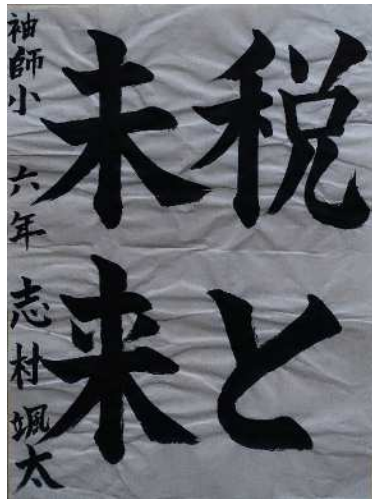 税と
未来
袖師小 六年 志村颯太